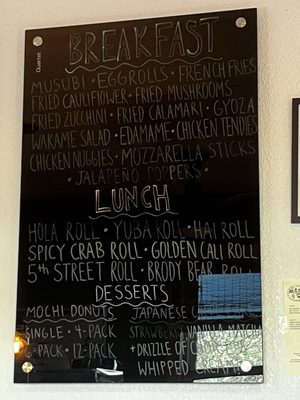 Quartet
BREAKFAST
MUSUBI • EGGROLLS • FRENCH FRIES
FRIED CAULIFLOWER • FRIED MUSHROOMS
FRIED ZUCCHINI • FRIED CALAMARI • GYOZA
WAKAME SALAD • EDAMAME • CHICKEN TENDIES
CHICKEN NUGGIES • MOZZARELLA STICKS
• JALAPEÑO POPPERS •
LUNCH
HOLA ROLL • YUBA ROLL • HAI ROLL
SPICY CRAB ROLL • GOLDEN CALI ROLL
5TH STREET ROLL • BRODY BEAR ROLL
DESSERTS
MOCHI DONUTS JAPANESE
SINGLE • 4-PACK STRAWBERRY VANILLA MATCHA
6-PACK • 12-PACK + DRIZZLE OF
WHIPPED CREAM